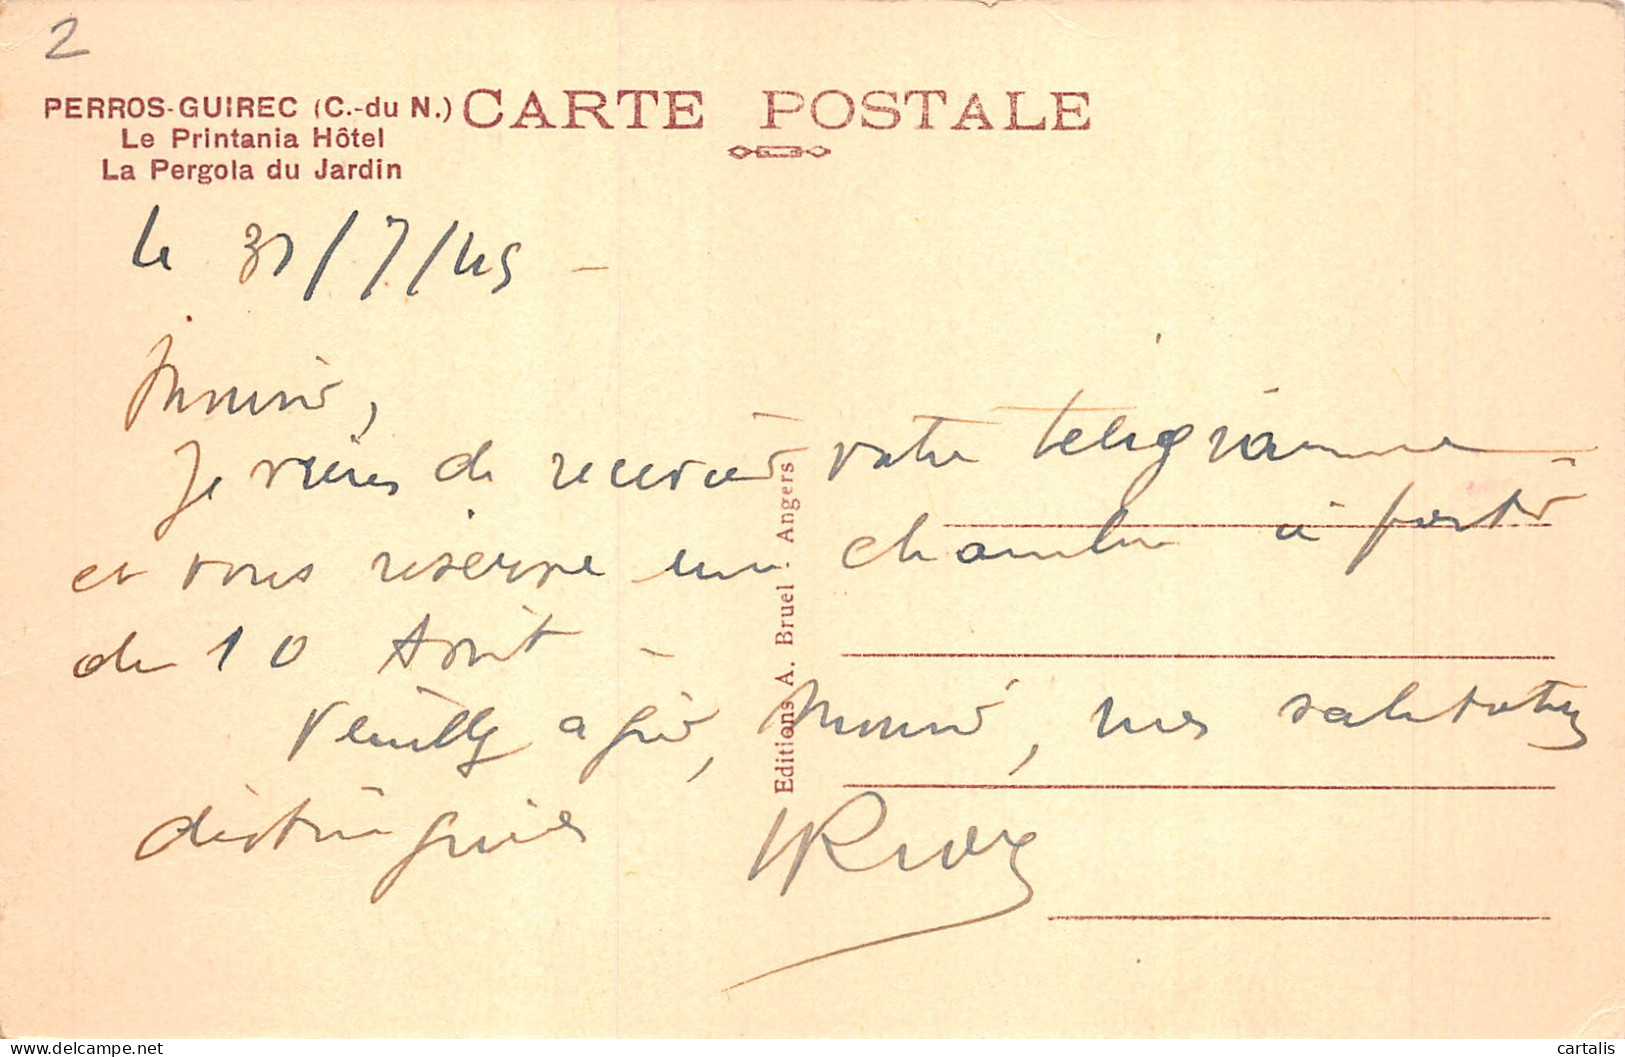 2
PERROS-GUIREC (C.-du N.)
Le Printania Hôtel
La Pergola du Jardin
CARTE POSTALE
le 31/7/45 -
Monsieur,
Je viens de recevoir votre télégramme
et vous réserve une chambre à partir
du 10 Août -
Veuillez agréer, Monsieur, mes salutations
distinguées
Editions A. Bruel . Angers
delcampe.net
cartalis